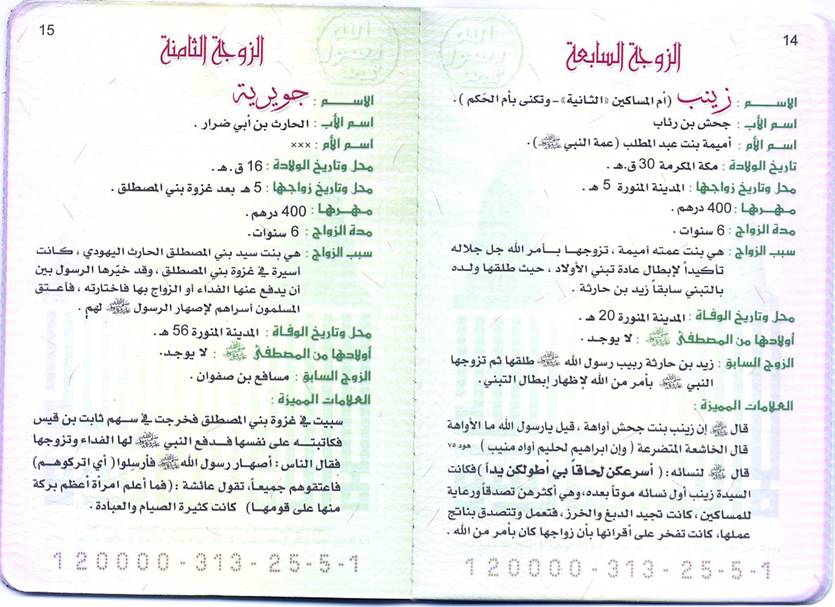 14
الزوجة السابعة
الاســـم : زينب (أم المساكين «الثانية» – وتكنى بأم الحَكم ) .
اسم الأب : جحش بن رئاب
اسم الأم : أميمة بنت عبد المطلب (عمة النبي ﷺ).
تاريخ الولادة : مكة المكرمة 30 ق.هـ .
محل وتاريخ زواجها : المدينة المنورة 5 هـ .
مهـرهـا : 400 درهم .
مدة الزواج : 6 سنوات .
سبب الزواج : هي بنت عمته أميمة ، تزوجهـا بـأمر الله جل جلاله
تأكيداً لإبطال عادة تبني الأولاد ، حيث طلقها ولده
بالتبني سابقاً زيد بن حارثة .
محل وتاريخ الوفاة : المدينة المنورة 20 هـ .
أولادها من المصطفىٰ ﷺ : لا يوجد .
الزوج السابق : زيد بن حارثة ربيب رسول الله ﷺ طلقها ثم تزوجها
النبي ﷺ بأمر من الله لإظهار إبطال التبني.
العلامات المميزة :
قال ﷺ إن زينب بنت جحش أواهة ، قيل يارسول الله ما الأواهة
قال الخاشعة المتضرعة ( وإن ابراهيم لحليم أواه منيب ) هود ٧٥
قال ﷺ لنسائه : ( أسرعكن لحاقاً بي أطولكن يداً ) فكانت
السيدة زينب أول نسائه موتاً بعده، وهي أكثرهن تصدقاً ورعاية
للمساكين ، كانت تجيد الدبغ والخرز ، فتعمل وتتصدق بناتج
عملها، كانت تفخر على أقرانها بأن زواجها كان بأمر من الله .
120000-313-25-5-1
15
الزوجة الثامنة
الاســـم : جويرية
اسم الأب : الحارث بن أبي ضرار .
اسم الأم : ×××
محل وتاريخ الولادة : 16 ق.هـ .
محل وتاريخ زواجها : 5 هـ بعد غزوة بني المصطلق .
مهـرهـا : 400 درهم .
مدة الزواج : 6 سنوات .
سبب الزواج : هي بنت سيد بني المصطلق الحارث اليهودي ، كـانت
أسيرة في غزوة بني المصطلق ، وقد خيّرها الرسول بين
أن يدفع عنها الفداء أو الزواج بها فاختارته ، فـأعتـق
المسلمون أسراهم لإصهار الرسول ﷺ لهم .
محل وتاريخ الوفاة : المدينة المنورة 56 هـ .
أولادها من المصطفىٰ ﷺ : لا يوجد.
الزوج السابق : مسافع بن صفوان .
العلامات المميزة :
سبيت في غزوة بني المصطلق فخرجت في سهم ثابت بن قيس
فكاتبتـه على نفسها فـدفع النبي ﷺ لها الفداء وتزوجها
فقال الناس : أصهار رسول الله ﷺ فأرسِلوا( أي اتركوهم )
فاعتقوهم جميعاً، تقول عائشة : (فما أعلم امرأة أعظم بركة
منها على قومها) كانت كثيرة الصيام والعبادة .
120000-313-25-5-1